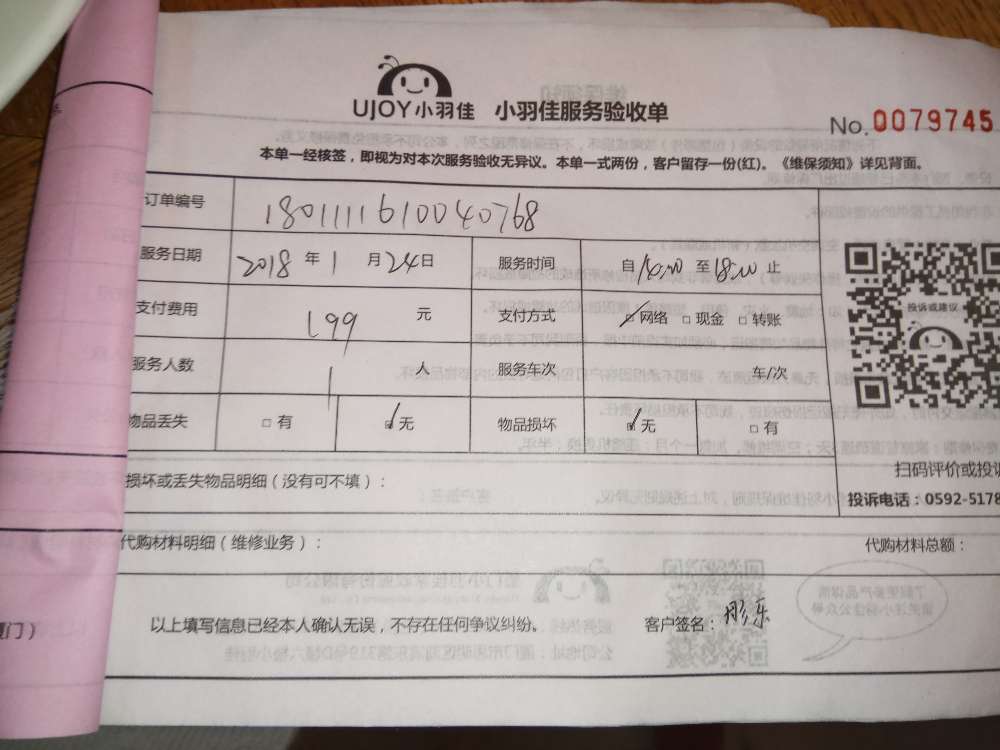 UJOY小羽佳 小羽佳服务验收单
No. 0079745
本单一经核签，即视为对本次服务验收无异议。本单一式两份，客户留存一份(红)。《维保须知》详见背面。
订单编号 180111161004 0768
服务日期 2018 年 1 月 24 日 服务时间 自 至 18:00 止
支付费用 199 元 支付方式 ☑网络 □现金 □转账
投诉或建议
服务人数 1 人 服务车次 车/次
物品丢失 □有 ☑无 物品损坏 ☑无 □有
扫码评价或投诉
损坏或丢失物品明细（没有可不填）：
投诉电话：0592-5178
代购材料明细（维修业务）： 代购材料总额：
厦门）
以上填写信息已经本人确认无误，不存在任何争议纠纷。 客户签名：